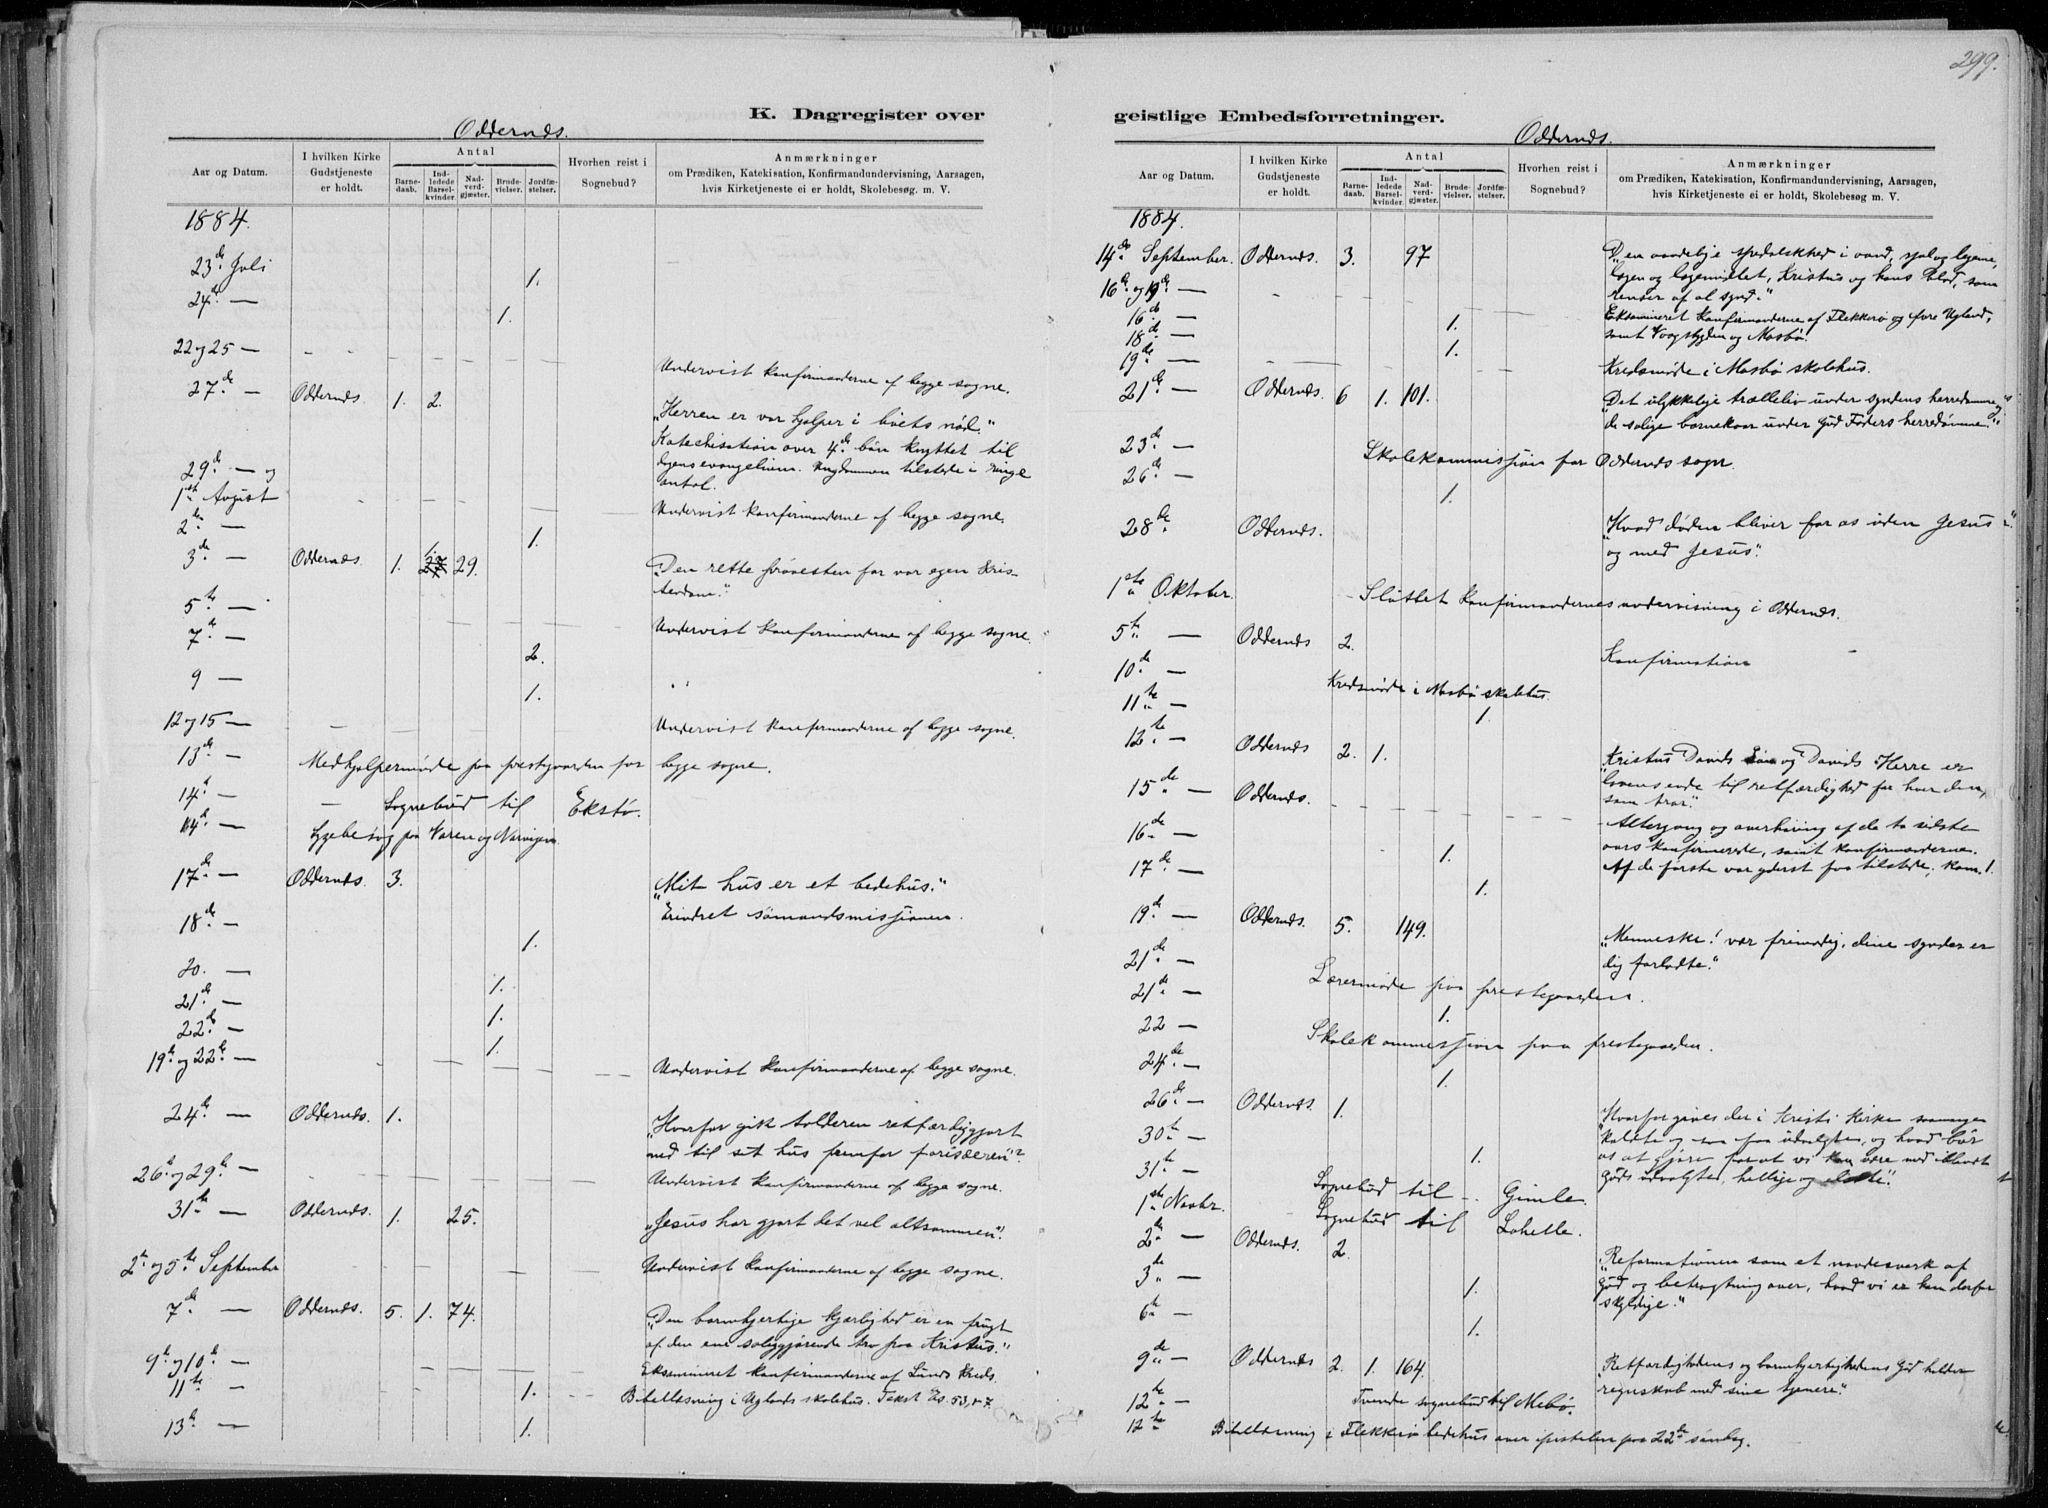 K. Dagregister over
Oddernæs.
Aar og Datum.
I hvilken Kirke Gudstjeneste er holdt.
Antal
Barne-daab.
Ind-ledede Barsel-kvinder.
Nad-verd-gjæster.
Brude-vielser.
Jordfæ-stelser.
Hvorhen reist i Sognebud?
Anmærkninger
om Prædiken, Katekisation, Konfirmandundervisning, Aarsagen,
hvis Kirketjeneste ei er holdt, Skolebesøg m. V.
1884.
23de Juli 1.
24de — 1.
22 og 25 — Undervist konfirmanderne af begge sogne.
27de — Oddernæs 1. 2. „Herren er vor hjælper i livets nød.“
Katechisation over 4de bøn knyttet til
dagens evangelium. Ungdommen tilstede i ringe
antal.
29de — og
1ste August Undervist konfirmanderne af begge sogne.
2den — 1.
3de — Oddernæs 1. 1. 29. „Den rette prøvesten for vor egen kris-
tendom.“
5te —
7de — Undervist konfirmanderne af begge sogne.
2.
9 — 1.
12 og 15 — Undervist konfirmanderne af begge sogne.
13de — Medhjælpermøde paa prestegaarden for begge sogne.
14de — Sognebud til Ekstø.
14de — Sygebesøg paa Varen og Narvigen
17de — Oddernæs. 3. „Mit hus er et bedehus.“
Erindret sømandsmissionen.
18de — 1.
20. — 1.
21de — 1.
22de — 1.
19de og 22de — Undervist konfirmanderne af begge sogne.
24de — Oddernæs. 1. „Hvorfor gik tolderen retfærdiggjort
ned til sit hus fremfor farisæeren“?
26de og 29de — Undervist konfirmanderne af begge sogne.
31te — Oddernæs. 1. 25. „Jesus har gjort det vel altsammen“.
2de og 5te September Undervist konfirmanderne af begge sogne.
7de — Oddernæs. 5. 1. 74. „Den barmhjertige kjærlighed er en frugt
af den ene saliggjørende tro paa Kristus.“
9de og 10de — Eksamineret konfirmanderne af Lunds kreds.
11te — 1. Bibellæsning i Uglands skolehus. Tekst Es. 53, 4-7.
13de — 1.
299.
geistlige Embedsforretninger.
Oddernæs.
Aar og Datum.
I hvilken Kirke Gudstjeneste er holdt.
Antal
Barne-daab.
Ind-ledede Barsel-kvinder.
Nad-verd-gjæster.
Brude-vielser.
Jordfæ-stelser.
Hvorhen reist i Sognebud?
Anmærkninger
om Prædiken, Katekisation, Konfirmandundervisning, Aarsagen,
hvis Kirketjeneste ei er holdt, Skolebesøg m. V.
1884.
14de September. Oddernæs. 3. 97 „Den aandelige spedalskhed i aand, sjæl og legeme,
lægen og lægemidlet, Kristus og hans blod, som
renser af al synd.“
16de og 19de — Eksamineret konfirmanderne af Flekkerø og øvre Ugland,
samt Vaagsbygden og Mosbø.
16de — 1.
18de — 1.
19de — Kredsmøde i Mosbø skolehus.
21de — Oddernæs. 6 1. 101. „Det ulykkelige trælleliv under syndens herredømme og
de salige børnekaar under Gud Faders herredømme.“
23de — Skolekommission for Oddernæs sogn.
26de — 1.
28de Oddernæs. „Hvad døden bliver for os uden Jesus“
„og med Jesus“.
1ste Oktober. Sluttet konfirmandernes undervisning i Oddernæs.
5te — Oddernæs 2. Konfirmation
10de — Kredsmøde i Mosbø skolehus.
11te — 1.
12te — Oddernæs 2. 1. „Kristus Davids søn og Davids Herre er
lovens ende til retfærdighed for hver den,
som tror“.
15de — Oddernæs. Altergang og overhøring af de to sidste
aars konfirmerede, samt konfirmanderne.
Af de første var yderst faa tilstede, kom. 1.
16de — 1.
17de — 1.
19de — Oddernæs. 5. 149. „Menneske! vær frimodig, dine synder er
dig forladte“.
21de — Lærermøde paa prestegaarden.
21de — 1.
22 — Skolekommission paa prestegaarden.
24de — 1.
26de — Oddernæs. 1. „Hvorfor gives der i Kristi Kirke saa mange
kaldte og saa faa udvalgte, og hvad bør
os at gjøre for at vi kan være med iblandt
Guds udvalgte, hellige og elskte“.
30te — 1.
31te — Sognebud til Gimle.
1ste Novbr. Sognebud til Lohelle.
2de — Oddernæs. 2. „Reformationen som et naadesverk af
Gud og betragtning over, hvad vi er ham derfor
skyldige.“
3de — 1.
6te — 1.
9de — Oddernæs 2. 1. 164. „Retfærdighedens og barmhjertighedens Gud holder
regnskab med sine tjenere“.
12te — Tvende sognebud til Mebø.
12te Bibellæsning i Flekkerø bedehus over epistelen paa 22de søndag.